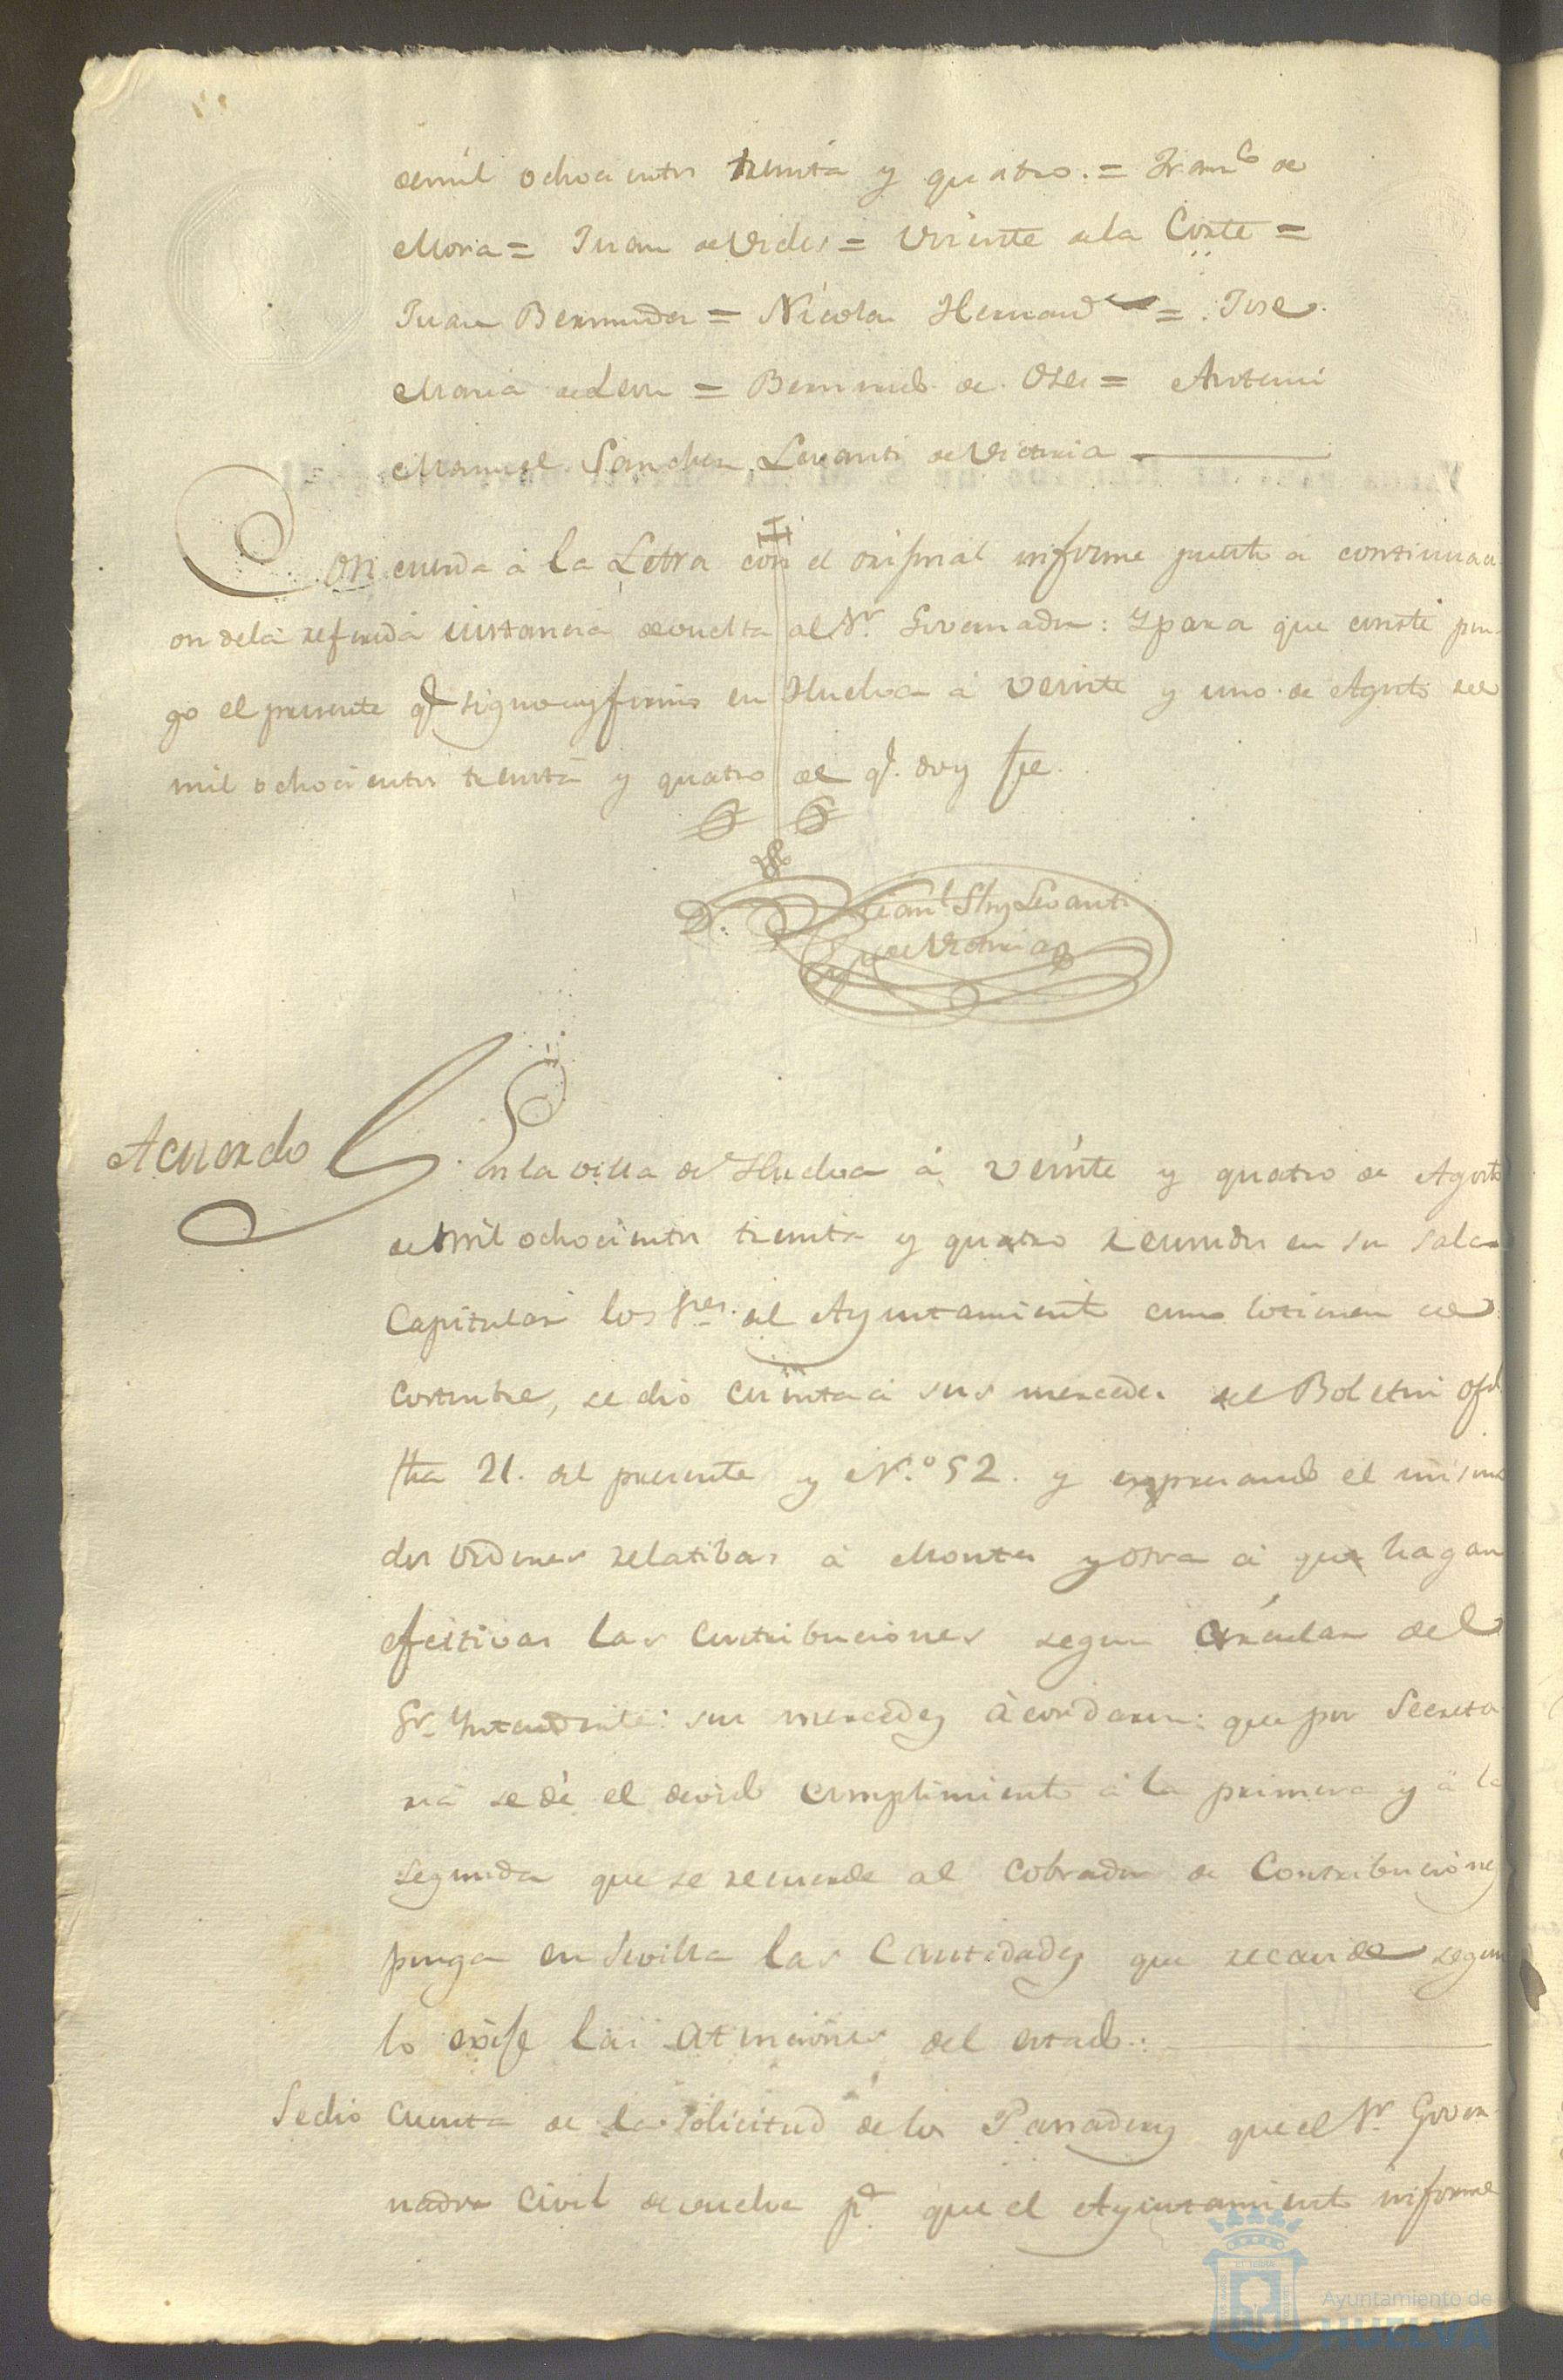 de mil ochocientos treinta y quatro. = Fran.co de
Mora = Juan de Vides = Vicente de la Corte =
Juan Bermudez = Nicolas Hernandez = Jose
Maria de Leon = Bernardo de Osea = Antemi
Manuel Sanchez Levanti de Victoria
Concuerda à la Letra con el original informe puesto à continuaci
on de la referida instancia devuelta al Sr. Governador: Y para que conste pon-
go el presente q.e signo y firmo en Huelva à veinte y uno de Agosto de
mil ochocientos treinta y quatro de q.e doy fee
Man.l Shz Levanti
de Victoria
Acuerdo
En la villa de Huelva à veinte y quatro de Agosto
de mil ochocientos treinta y quatro reunidos en su Sala
Capitular los Sres. del Ayuntamiento como lo tienen de
costumbre, se dio cuenta à sus mercedes del Boletin ofi.l
fha 21. del presente y N.º 52. y expresando el mismo
dos ordenes relatibas à Montes y otra à que hagan
efectivas las contribuciones segun Circular del
Sr. Yntendente: sus mercedes àcordaron: que por Secreta
ria se dè el devido cumplimiento à la primera y à la
segunda que se recuerde al Cobrador de Contribuciones
ponga en Sevilla las Cantidades que recaude segun
lo exije las atenciones del estado.
Se dio cuenta de la solicitud de los Panaderos que el Sr. Gover-
nador Civil devuelve p.a que el Ayuntamiento informe
Ayuntamiento de
HUELVA